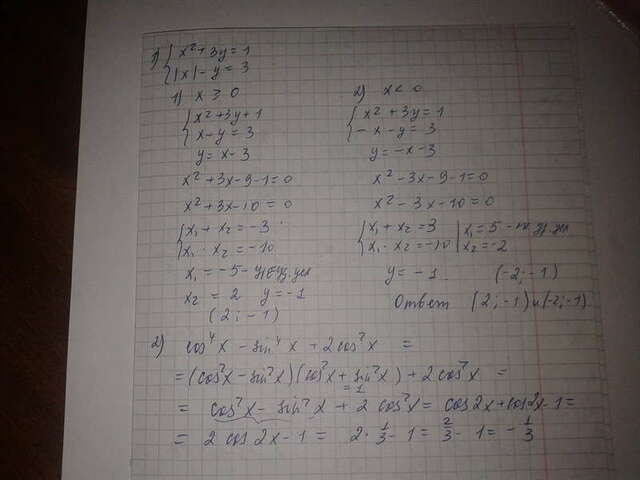 1) { x² + 3y = 1
|x| - y = 3
1) x ≥ 0
{ x² + 3y + 1
x - y = 3
y = x - 3
x² + 3x - 9 - 1 = 0
x² + 3x - 10 = 0
{ x₁ + x₂ = -3
x₁ · x₂ = -10
x₁ = -5 -
x₂ = 2 y = -1
(2; -1)
2) x < 0
{ x² + 3y = 1
-x - y = 3
y = -x - 3
x² - 3x - 9 - 1 = 0
x² - 3x - 10 = 0
{ x₁ + x₂ = 3 | x₁ = 5 -
x₁ · x₂ = -10 | x₂ = -2
y = -1 (-2; -1)
Ответ (2; -1) и (-2; -1)
2) cos⁴x - sin⁴x + 2cos²x =
= (cos²x - sin²x)(cos²x + sin²x) + 2cos²x =
= 1
= cos²x - sin²x + 2cos²x = cos2x + cos2x - 1 =
= 2 cos 2x - 1 = 2 · 1/3 - 1 = 2/3 - 1 = - 1/3